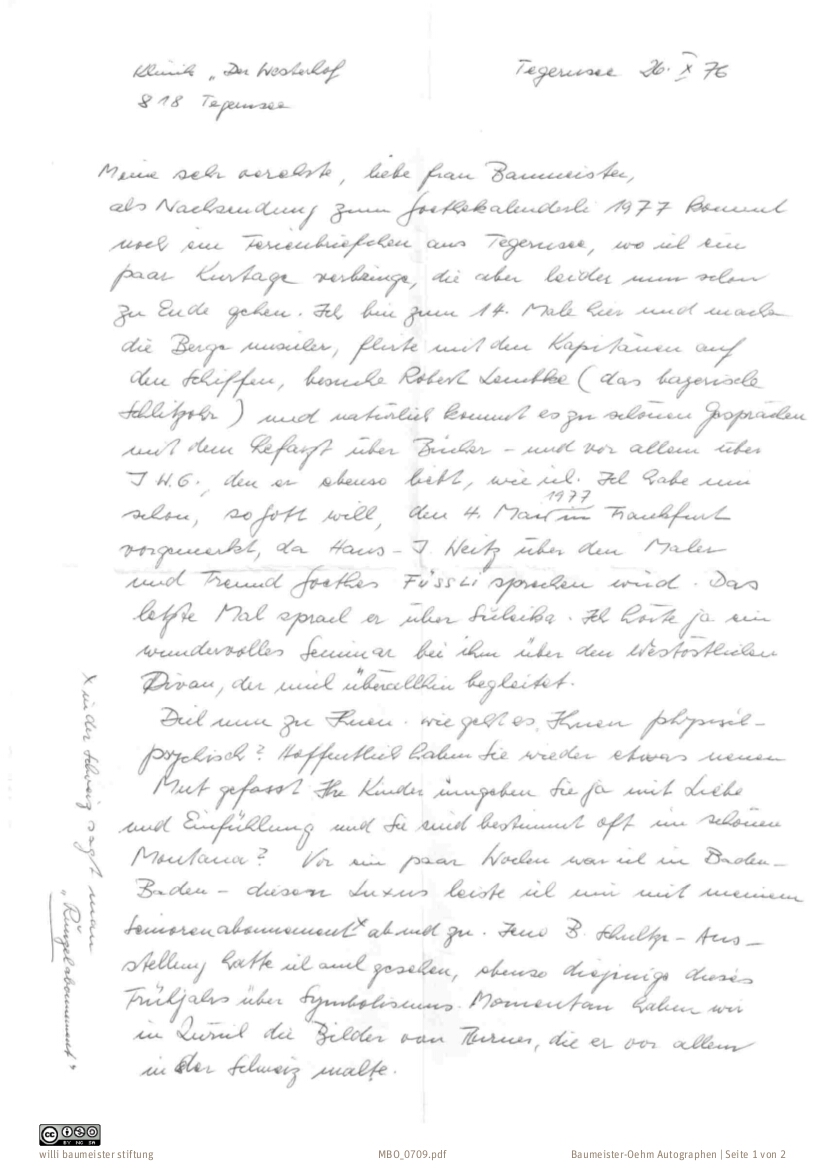 Klinik „Der Westerhof
818 Tegernsee
Tegernsee 26. X 76
Meine sehr verehrte, liebe Frau Baumeister,
als Nachsendung zum Goethekalenderli 1977 kommt
noch ein Ferienbriefchen aus Tegernsee, wo ich ein
paar Kurtage verbringe, die aber leider nun schon
zu Ende gehen. Ich bin zum 14. Male hier und mache
die Berge unsicher, flirte mit den Kapitänen auf
den Schiffen, besuche Robert Lembke (das bayerische
Schlitzohr) und natürlich kommt es zu schönen Gesprächen
mit dem Chefarzt über Bücher – und vor allem über
J W. G., den er ebenso liebt, wie ich. Ich habe mir
schon, so Gott will, den 4. Mai 1977 in Frankfurt
vorgemerkt, da Hans-J. Weitz über den Maler
und Freund Goethes FüSSLi sprechen wird. Das
letzte Mal sprach er über Suleika. Ich hörte ja ein
wundervolles Seminar bei ihm über den Westöstlichen
Divan, der mich überallhin begleitet.
nun zu Ihnen. wie geht es Ihnen physisch-
psychisch? Hoffentlich haben Sie wieder etwas neuen
Mut gefasst. Ihre Kinder umgeben Sie ja mit Liebe
und Einfühlung und Sie sind bestimmt oft im schönen
Montana? Vor ein paar Wochen war ich in Baden-
Baden – diesen Luxus leiste ich mir mit meinem
Seniorenabonnement x ab und zu. Jene B. Schultze-Aus-
stellung hatte ich auch gesehen, ebenso diejenige dieses
Frühjahrs über Symbolismus. Momentan haben wir
in Zürich die Bilder von Turner, die er vor allem
in der Schweiz malte.
x in der Schweiz sagt man
„Runzelabonnement"
willi baumeister stiftung
MBO_0709.pdf
Baumeister-Oehm Autographen | Seite 1 von 2